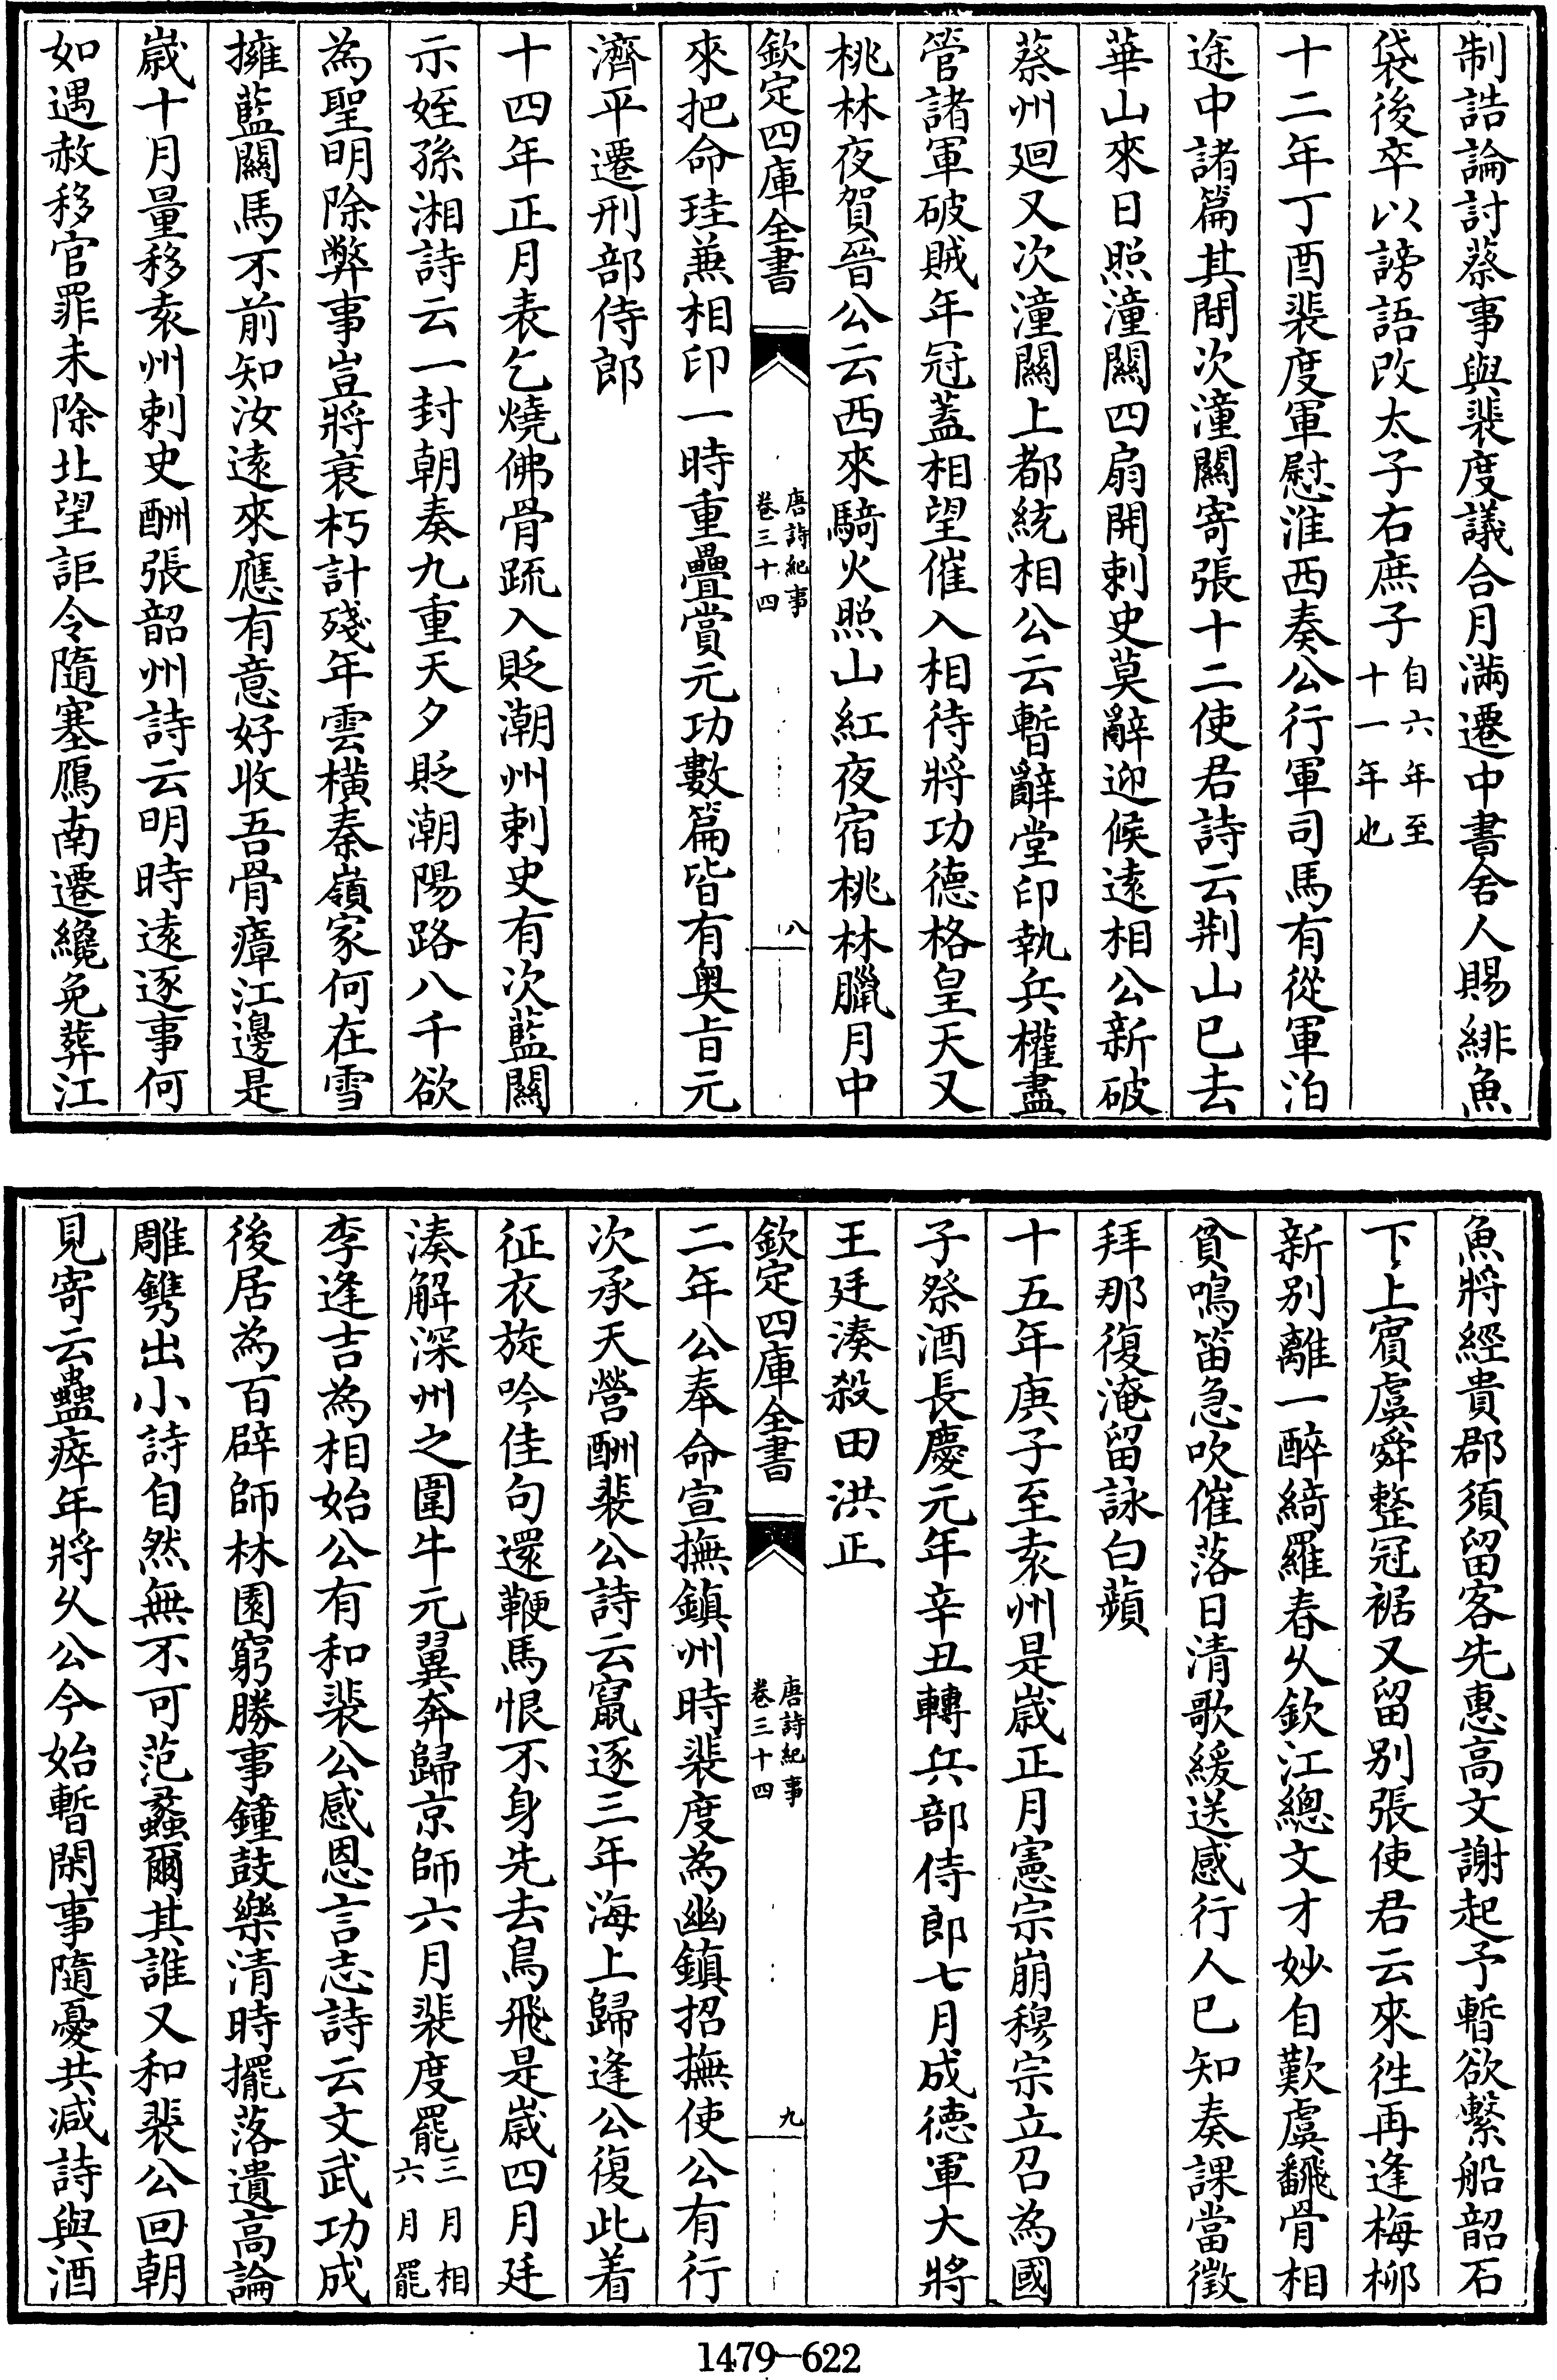 制誥論討蔡事與裴度議合月滿遷中書舍人賜緋魚
袋後卒以謗語改太子右庶子自六年至十一年也
十二年丁酉裴度軍慰淮西奏公行軍司馬有從軍泊
途中諸篇其間次潼關寄張十二使君詩云荆山已去
華山來日照潼關四扇開刺史莫辭迎候遠相公新破
蔡州廻又次潼關上都統相公云暫辭堂印執兵權盡
管諸軍破賊年冠蓋相望催入相待將功德格皇天又
桃林夜賀晉公云西來騎火照山紅夜宿桃林臘月中
欽定四庫全書
唐詩紀事
卷三十四
八
來把命珪兼相印一時重疊賞元功數篇皆有奥旨元
濟平遷刑部侍郎
十四年正月表乞燒佛骨疏入貶潮州刺史有次藍關
示姪孫湘詩云一封朝奏九重天夕貶潮陽路八千欲
為聖明除弊事豈將衰朽計殘年雲橫秦嶺家何在雪
擁藍關馬不前知汝遠來應有意好收吾骨瘴江邊是
嵗十月量移袁州刺史酬張韶州詩云明時遠逐事何
如遇赦移官罪未除北望詎令隨塞鴈南遷纔免葬江
魚將經貴郡須留客先惠高文謝起予暫欲繫船韶石
下上賓虞舜整冠裾又留别張使君云來徃再逢梅柳
新别離一醉綺羅春乆欽江總文才妙自歎虞翻骨相
貧鳴笛急吹催落日清歌緩送感行人已知奏課當徵
拜那復淹留詠白蘋
十五年庚子至袁州是嵗正月憲宗崩穆宗立召為國
子祭酒長慶元年辛丑轉兵部侍郎七月成德軍大將
王廷湊殺田洪正
欽定四庫全書
唐詩紀事
卷三十四
九
二年公奉命宣撫鎮州時裴度為幽鎮招撫使公有行
次承天營酬裴公詩云竄逐三年海上歸逢公復此着
征衣旋吟佳句還鞭馬恨不身先去鳥飛是嵗四月廷
湊解深州之圍牛元翼奔歸京師六月裴度罷三月相六月罷
李逢吉為相始公有和裴公感恩言志詩云文武功成
後居為百辟師林園窮勝事鐘鼓樂清時擺落遺高論
雕鐫出小詩自然無不可范蠡爾其誰又和裴公回朝
見寄云盡瘁年將乆公今始暫閑事隨憂共减詩與酒
1479—622